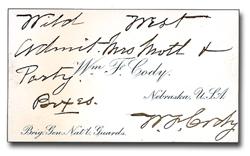 Wild West
Admit. Mrs Moth &
Party.
Wm F. Cody.
Boxes.
Nebraska, U.S.A
Brig. Gen. Nat'l. Guards.
W. F. Cody